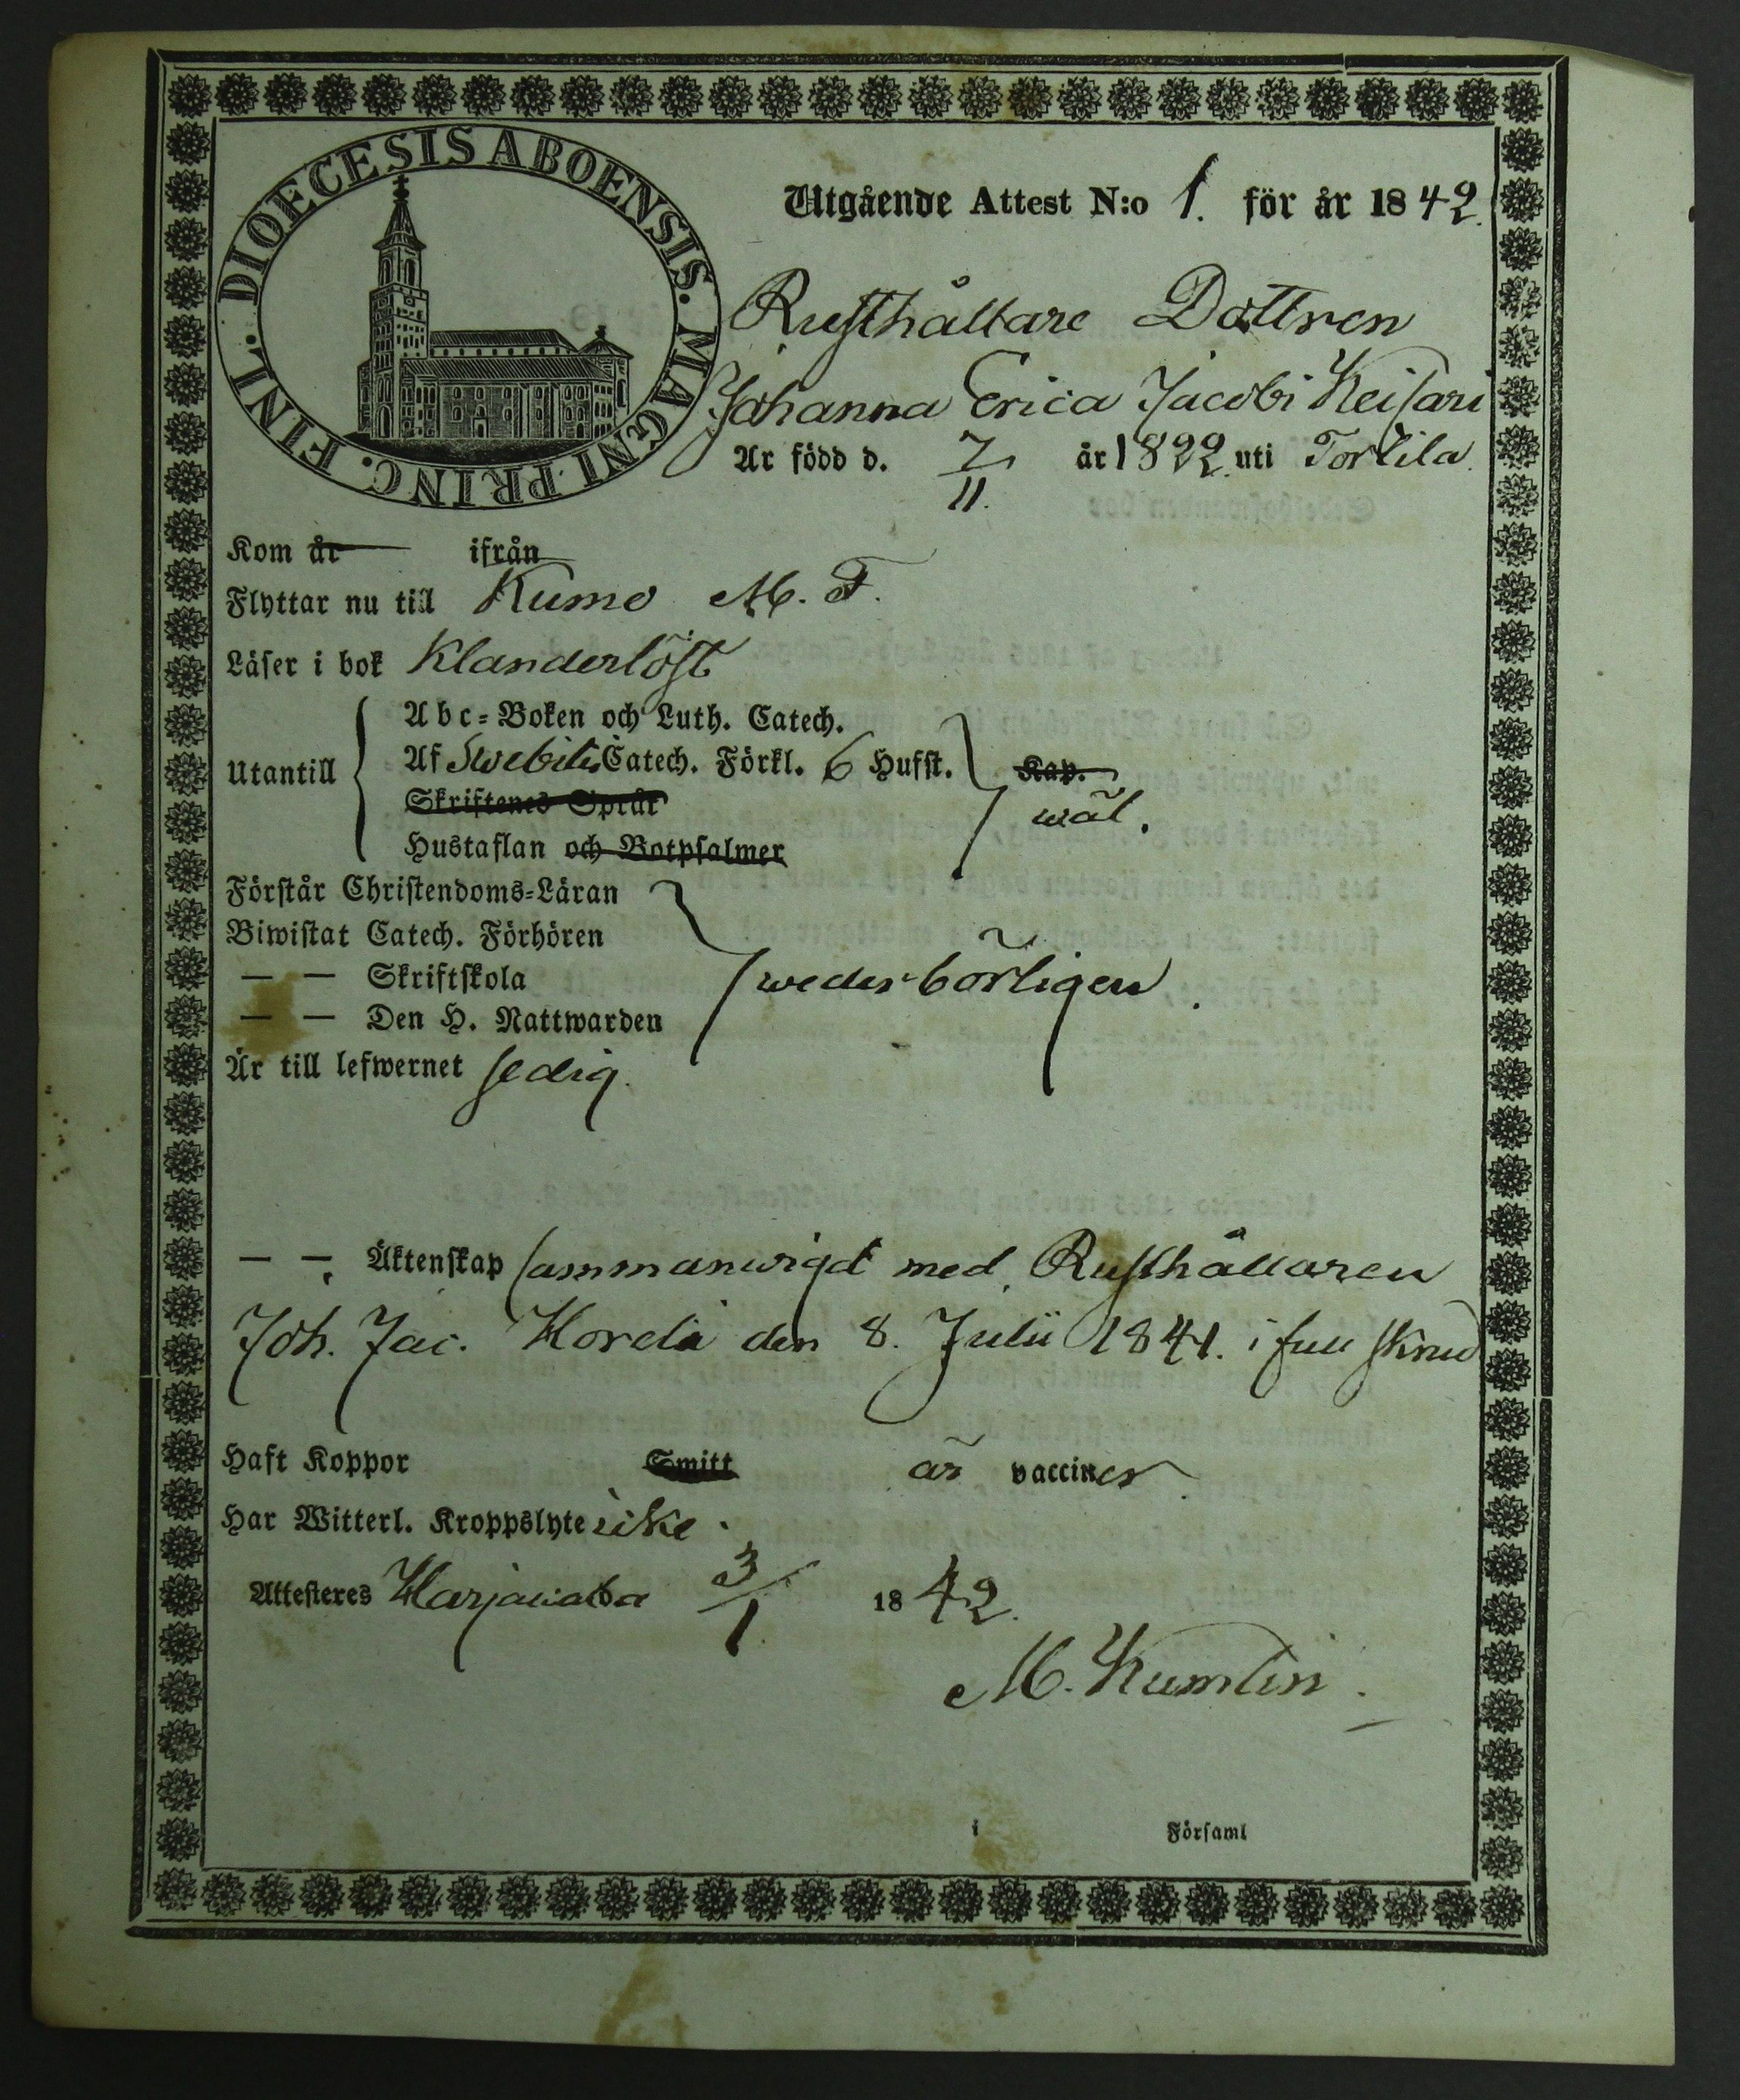 DIOECESIS ABOENSIS. MAGNI PRINC. FINL.
Utgående Attest N:o 1. för år 1842.
Rusthållare Dottren
Johanna Erica Jacobi Keisari
Är född d. 7/11. år 1822. uti Torttila.
Kom år ifrån
Flyttar nu till Kumo M. F.
Läser i bok Klanderlöst
Abc=Boken och Luth. Catech.
Utantill Af Swebilii Catech. Förkl. 6 Hufst. Kap.
Skriftenes Språk wäl.
Hustaflan och Botpsalmer
Förstår Christendoms=Läran
Biwistat Catech. Förhören
— — Skriftskola wederbörligen.
— — Den H. Nattwarden
Är till lefwernet sedig.
— — Äktenskap sammanwigd med Rusthållaren
Joh. Jac. Horela den 8. Julii 1841. i full skrud
Haft Koppor Smitt är vacciner
Har Witterl. Kroppslyte icke.
Attesteres Harjawalda 3/1. 1842.
M. Kumlin.
i Församl